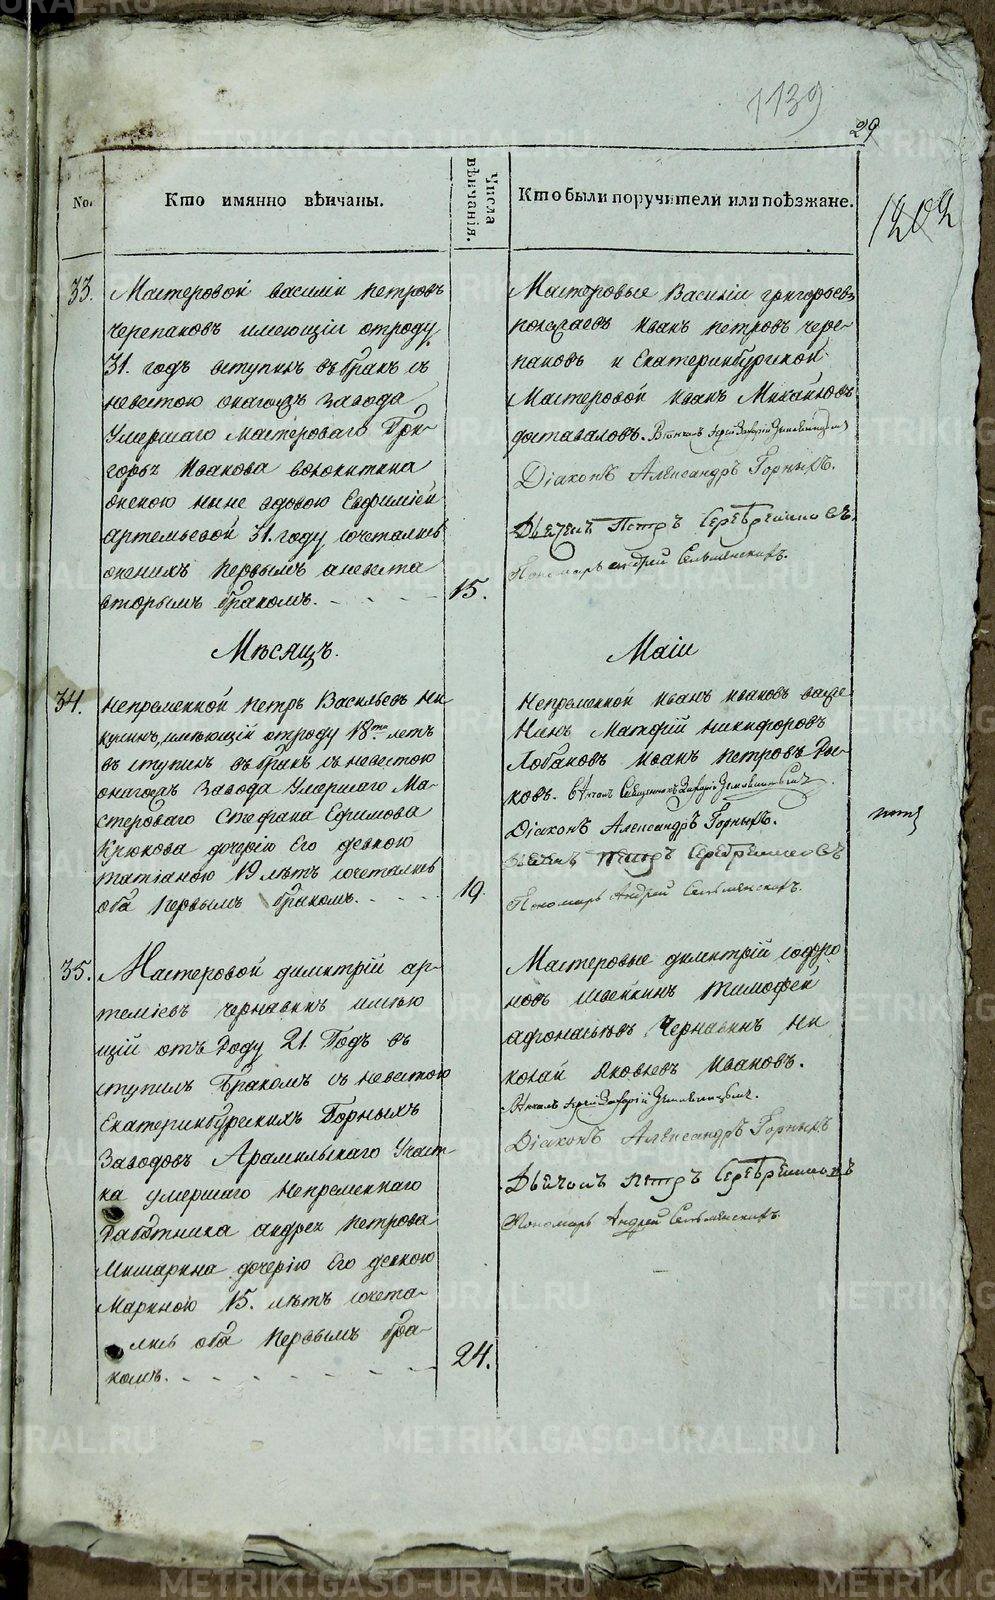 1139
29
1202
No.
Кто имянно вѣнчаны.
Числа вѣнчанія.
Кто были поручители или поѣзжане.
33.
Мастеровой василіи петровъ
черепановъ имеющіи отроду
31. годъ вступилъ въ бракъ съ
невестою онагожъ завода
Умершаго мастероваго Гри-
горья Иванова волокитина
женою ныне вдовою Евфиміей
артемьевой 31. году сочетались
женихъ первымъ а невеста
вторымъ бракомъ.
15.
Мастеровые Василіи григорьевъ
Иванъ петровъ чере-
пановъ и Екатеринбургской
Мастеровой иванъ Михайловъ
доставаловъ. Венчалъ Іерей Захарій
Діаконъ Александръ Горныхъ.
Дьячекъ Петръ Серебренниковъ
Пономарь андрей Сельменскихъ.
Мѣсяцъ.
Маіи
34.
Непременной петръ Васильевъ Ни-
кулинъ, имѣющій отроду 18ти летъ
въ ступилъ въ бракъ съ невестою
онагожъ завода Умершаго Ма-
стероваго Стефана Ефимова
Крюкова дочерію Его девкою
татіаною 19 лѣтъ сочетались
оба первымъ бракомъ.
19.
Непременной иванъ ивановъ
Матфій никифоровъ
Лобановъ иванъ петровъ Ры-
ковъ. вѣнчалъ Священникъ Захарій
Діаконъ Александръ Горныхъ.
Дьячекъ петръ Серебренниковъ
Пономарь Андрей Сельменскихъ.
35.
Мастеровой димитрій ар-
теміевъ чернавинъ имѣю-
щій отъ Роду 21. Годъ в-
ступилъ Бракомъ съ невестою
Екатеринбурскихъ Горныхъ
Заводовъ Арамильскаго Участ-
ка умершаго непременнаго
работника андрея петрова
Мишарина дочерію Его девкою
Мариною 15. лѣтъ сочета-
лись оба первымъ бра-
комъ.
24.
Мастеровые димитрій
Швейкинъ тимофей
афонасьевъ Чернавинъ ни-
колай Яковлевъ Ивановъ.
Венчалъ Іерей Захарій
Діаконъ Александръ Горныхъ
Дьячокъ петръ Серебренниковъ
Пономарь Андрей Сельменскихъ.
METRIKI.GASO-URAL.RU